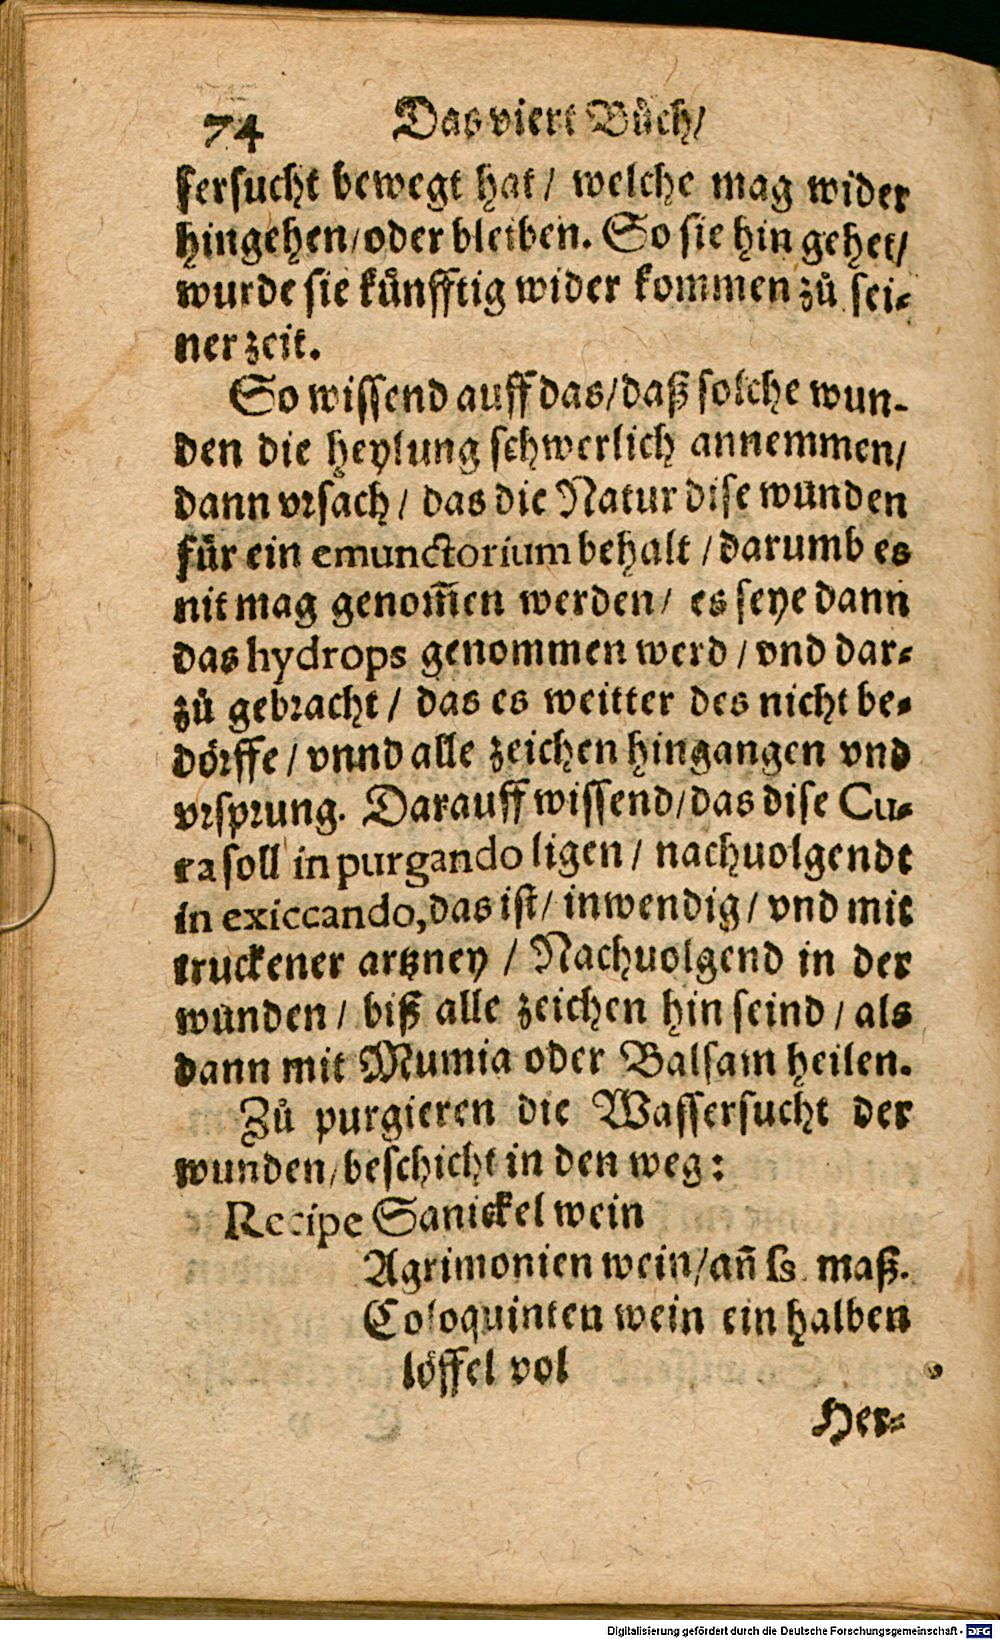 74 Das viert Bůch/
sersucht bewegt hat/ welche mag wider
hingehen/oder bleiben. So sie hin gehet/
wurde sie künfftig wider kommen zů sei-
ner zeit.
So wissend auff das/daß solche wun-
den die heylung schwerlich annemmen/
dann vrsach/ das die Natur dise wunden
für ein emunctorium behalt /darumb es
nit mag genom̄en werden/ es seye dann
das hydrops genommen werd /vnd dar-
zů gebracht/ das es weitter des nicht be-
dörffe/ vnnd alle zeichen hingangen vnd
vrsprung. Darauff wissend/das dise Cu-
ra soll in purgando ligen/ nachuolgendt
in exiccando,das ist/ inwendig/ vnd mit
truckener artzney / Nachuolgend in der
wunden/ biß alle zeichen hin seind /als
dann mit Mumia oder Balsam heilen.
Zů purgieren die Wassersucht der
wunden/beschicht in den weg:
Recipe Sanickel wein
Agrimonien wein/an̄ ſs. maß.
Coloquinten wein ein halben
löffel vol
Her-
Digitalisierung gefördert durch die Deutsche Forschungsgemeinschaft - DFG